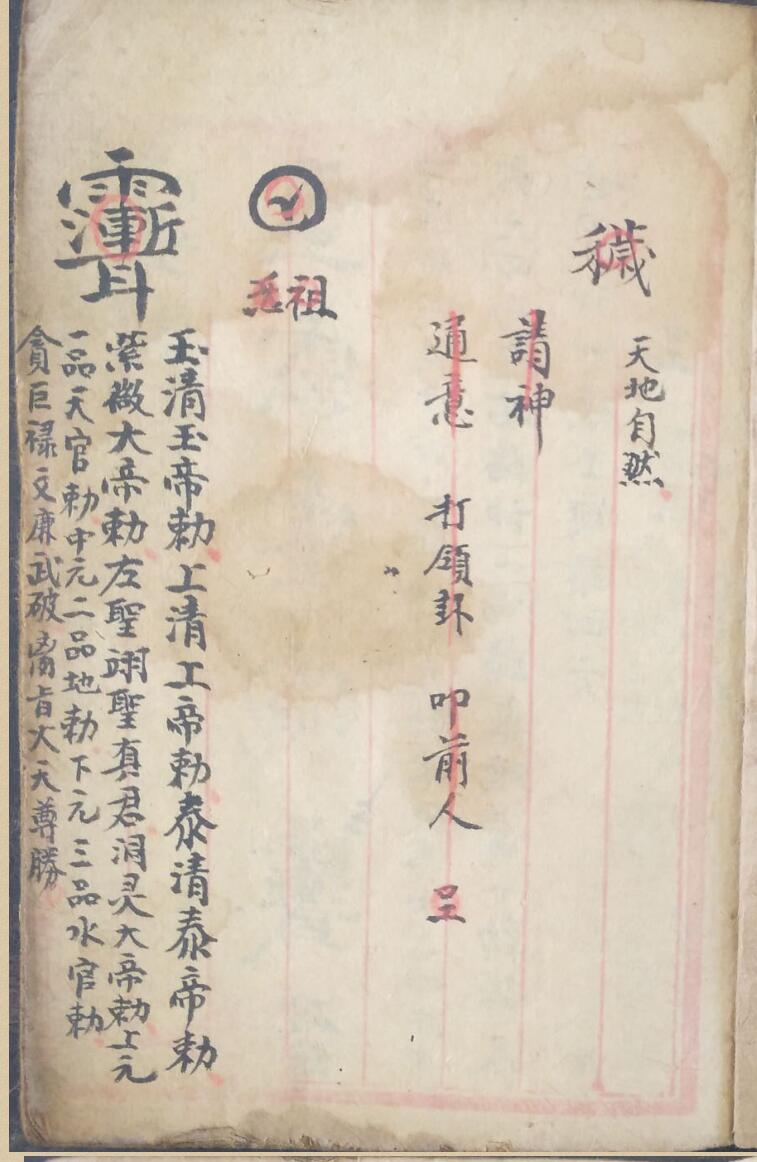 穢 天地自然
請神
通意 打領卦 叩前人 呈
祖
玉清玉帝勅上清上帝勅泰清泰帝勅
紫微大帝勅左聖翊聖真君洞灵大帝勅上元
一品天官勅中元二品地勅下元三品水官勅
貪巨禄文廉武破 大天尊勝